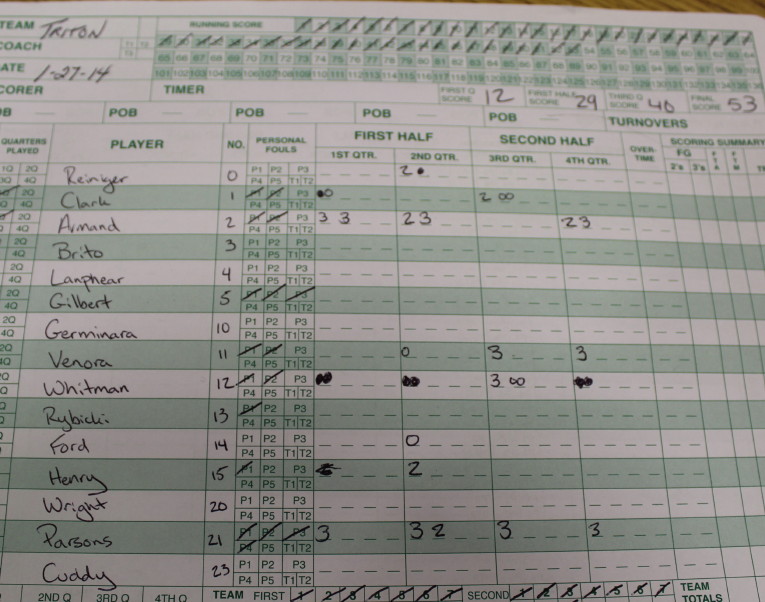 TEAM TRITON RUNNING SCORE
COACH
65 66 67 68 69 70 71 72 73 74 75 76 77 78 79 80 81 82 83
DATE 1-27-14 101 102 103 104 105 106 107 108 109 110 111 112 113 114 115 116 117 118 119
SCORER TIMER FIRST Q SCORE 12 FIRST HALF SCORE 29 THIRD Q SCORE 40 FINAL SCORE 53
POB POB POB POB POB TURNOVERS
QUARTERS PLAYED PLAYER NO. PERSONAL FOULS FIRST HALF SECOND HALF OVER-TIME SCORING SUMMARY
1ST QTR. 2ND QTR. 3RD QTR. 4TH QTR. FG 2's 3's
1Q 2Q 3Q 4Q Reiniger 0 P1 P2 P3 P4 P5 T1 T2 2
2Q 4Q Clark 1 P1 P2 P3 P4 P5 T1 T2 0 2 0 0
2Q 4Q Armand 2 P1 P2 P3 P4 P5 T1 T2 3 3 2 3 2 3
2Q 4Q Brito 3 P1 P2 P3 P4 P5 T1 T2
2Q 4Q Lanphear 4 P1 P2 P3 P4 P5 T1 T2
2Q 4Q Gilbert 5 P1 P2 P3 P4 P5 T1 T2
2Q 4Q Germinara 10 P1 P2 P3 P4 P5 T1 T2
2Q 4Q Venora 11 P1 P2 P3 P4 P5 T1 T2 0 3 3
Whitman 12 P1 P2 P3 P4 P5 T1 T2 3 0 0
Rybicki 13 P1 P2 P3 P4 P5 T1 T2
Ford 14 P1 P2 P3 P4 P5 T1 T2 0
Henry 15 P1 P2 P3 P4 P5 T1 T2 2
Wright 20 P1 P2 P3 P4 P5 T1 T2
Parsons 21 P1 P2 P3 P4 P5 T1 T2 3 3 2 3 3
Cuddy 23 P1 P2 P3 P4 P5 T1 T2
2ND Q 3RD Q 4TH Q TEAM FIRST 1 2 3 4 5 6 7 SECOND 1 2 3 4 5 6 7 TEAM TOTALS